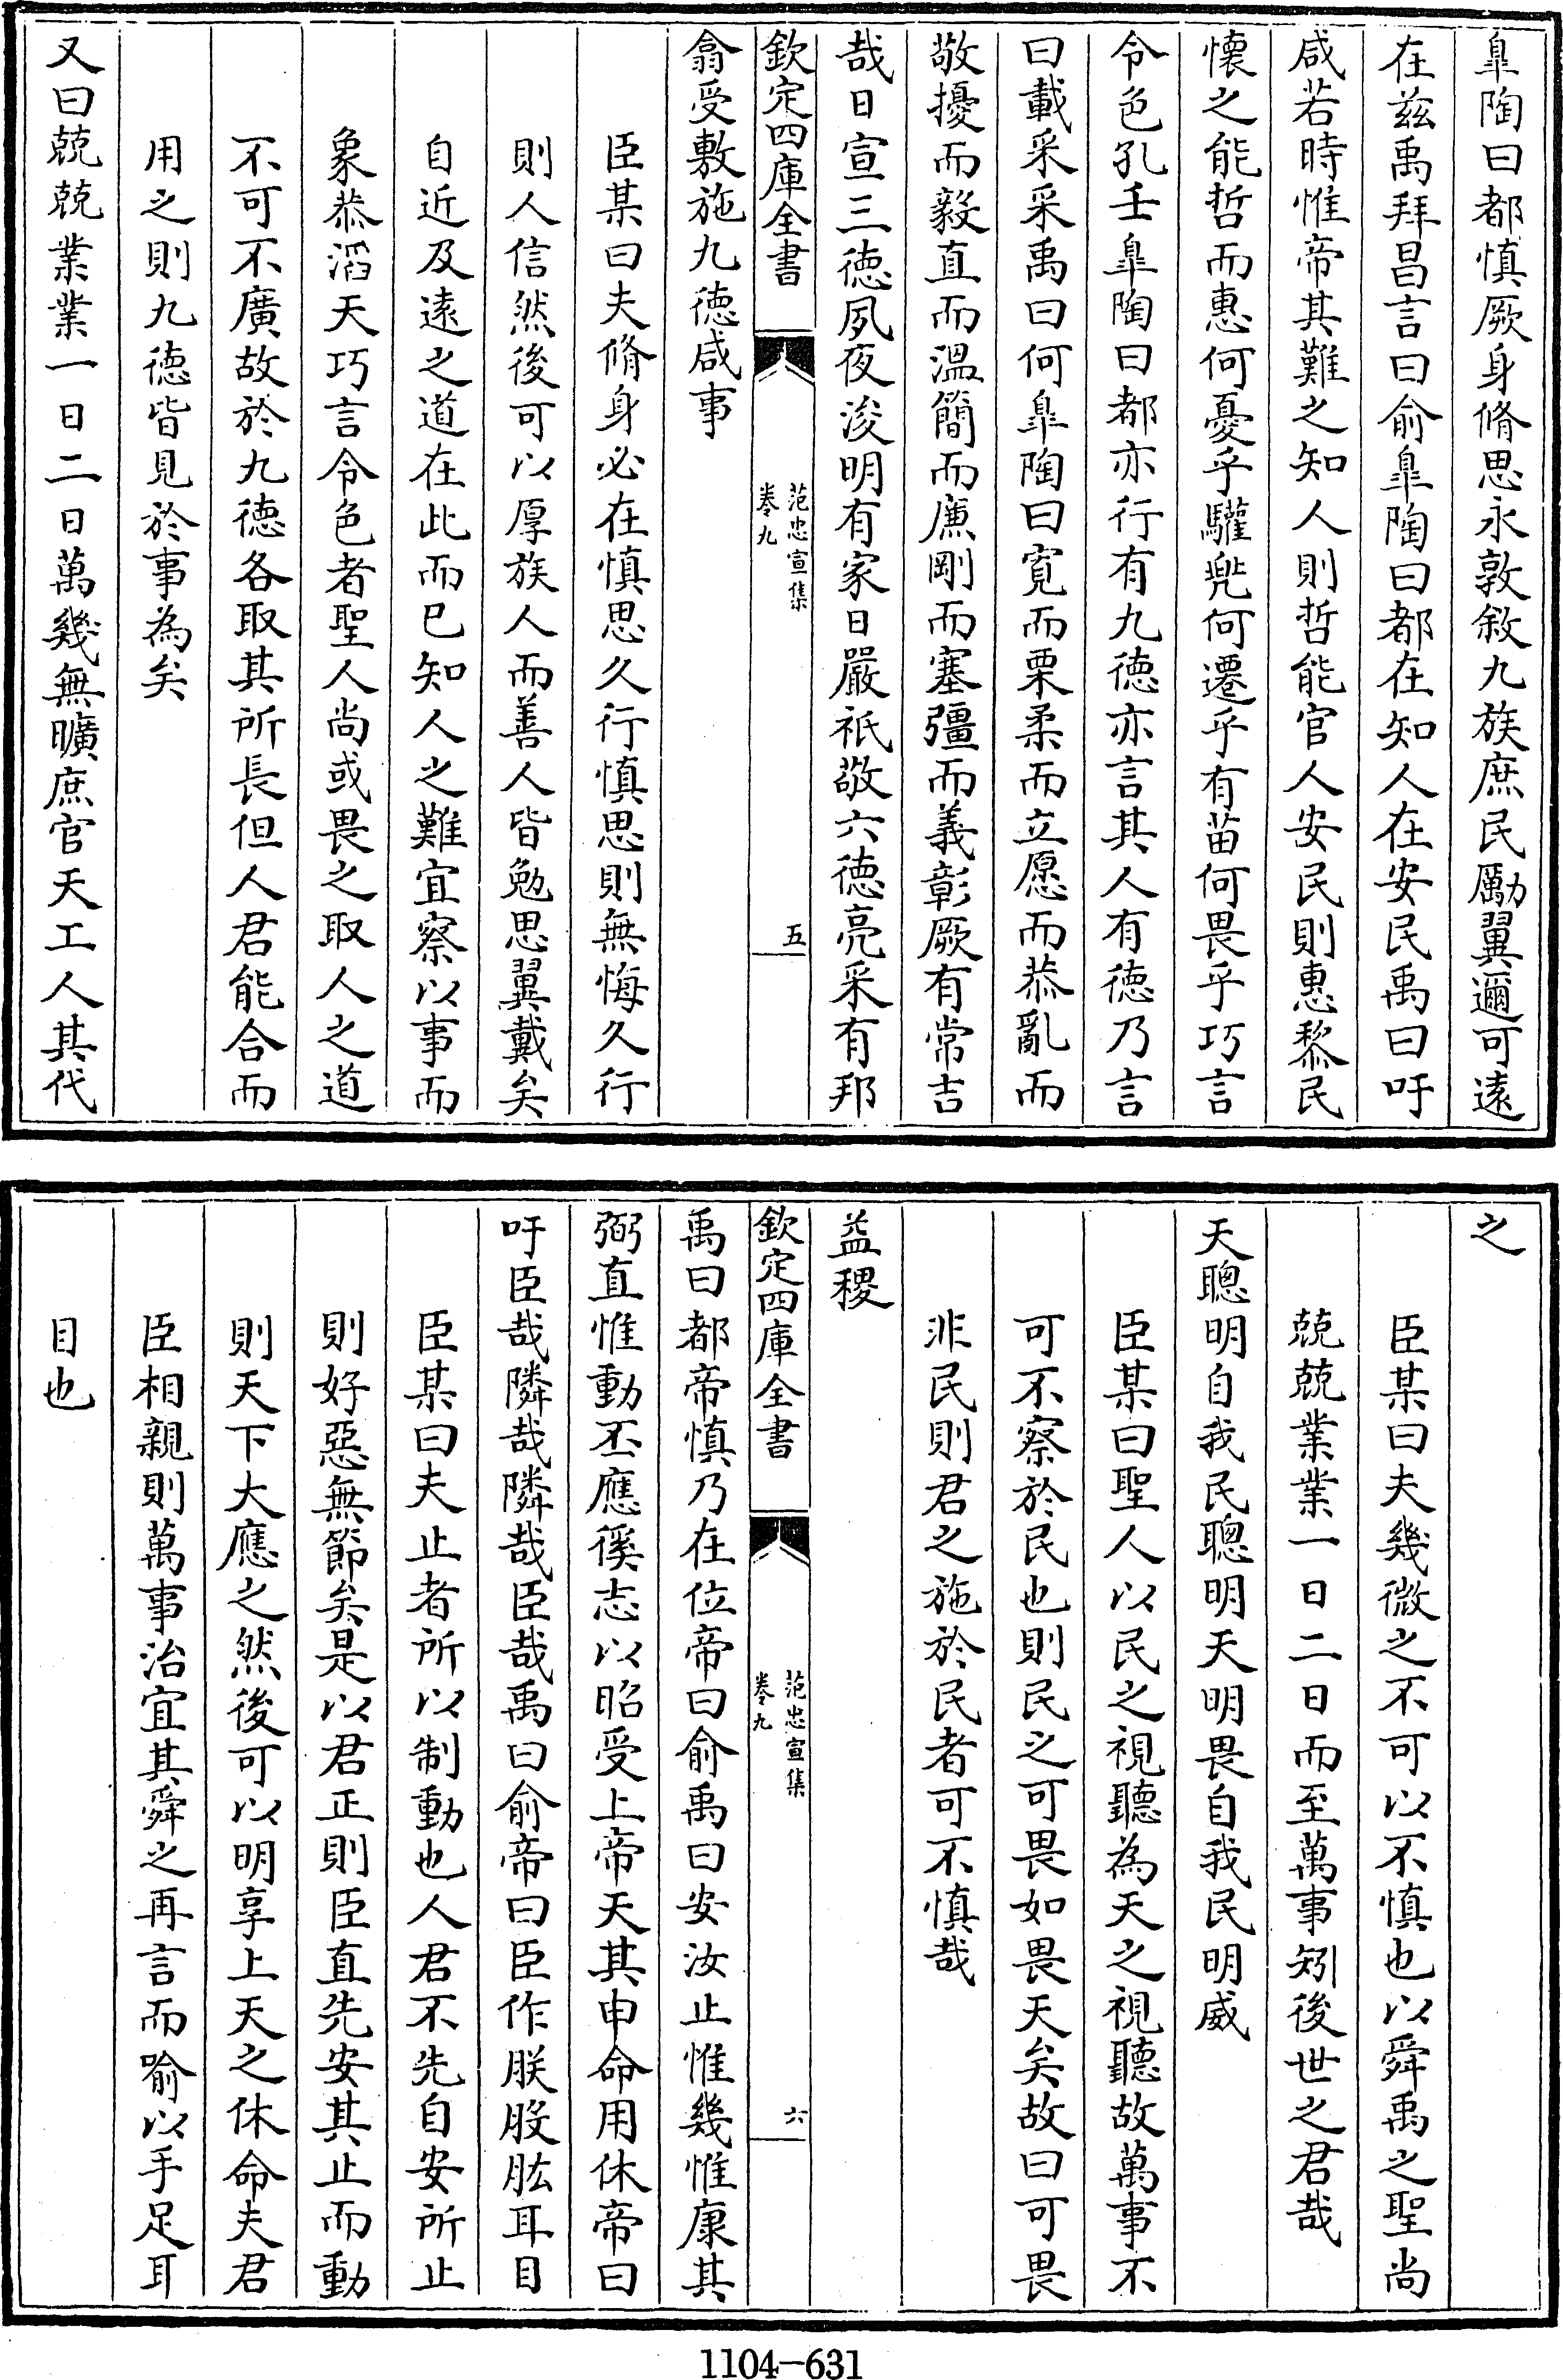 皐陶曰都慎厥身脩思永敦敘九族庶民勵翼邇可逺
在兹禹拜昌言曰俞皐陶曰都在知人在安民禹曰吁
咸若時惟帝其難之知人則哲能官人安民則惠黎民
懐之能哲而惠何憂乎驩兠何遷乎有苗何畏乎巧言
令色孔壬皐陶曰都亦行有九徳亦言其人有徳乃言
曰載采采禹曰何皐陶曰寛而栗柔而立愿而恭亂而
敬擾而毅直而溫簡而亷剛而塞彊而義彰厥有常吉
哉日宣三徳夙夜浚明有家日嚴祇敬六徳亮采有邦
欽定四庫全書
范忠宣集
卷九
五
翕受敷施九徳咸事
臣某曰夫脩身必在慎思久行慎思則無悔久行
則人信然後可以厚族人而善人皆勉思翼戴矣
自近及逺之道在此而已知人之難宜察以事而
象恭滔天巧言令色者聖人尚或畏之取人之道
不可不廣故於九徳各取其所長但人君能合而
用之則九徳皆見於事為矣
又曰兢兢業業一日二日萬幾無曠庶官天工人其代
之
臣某曰夫幾微之不可以不慎也以舜禹之聖尚
兢兢業業一日二日而至萬事矧後世之君哉
天聰明自我民聰明天明畏自我民明威
臣某曰聖人以民之視聽為天之視聽故萬事不
可不察於民也則民之可畏如畏天矣故曰可畏
非民則君之施於民者可不慎哉
益稷
欽定四庫全書
范忠宣集
卷九
六
禹曰都帝慎乃在位帝曰俞禹曰安汝止惟幾惟康其
弼直惟動丕應徯志以昭受上帝天其申命用休帝曰
吁臣哉隣哉隣哉臣哉禹曰俞帝曰臣作朕股肱耳目
臣某曰夫止者所以制動也人君不先自安所止
則好惡無節矣是以君正則臣直先安其止而動
則天下大應之然後可以明享上天之休命夫君
臣相親則萬事治宜其舜之再言而喻以手足耳
目也
1104-631